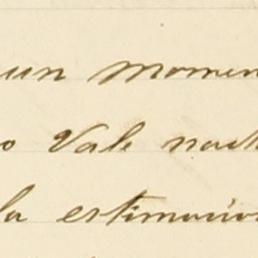 un momen
o vale nad
la estimacion